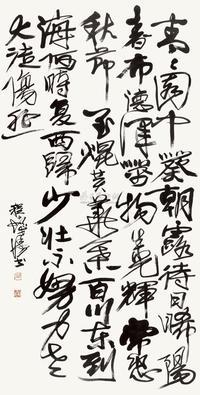 青々園中葵朝露待日晞陽
春布德澤萬物生光輝常恐
秋節至焜黄華葉衰百川東到
海何時復西歸少壯不努力老
大徒傷悲